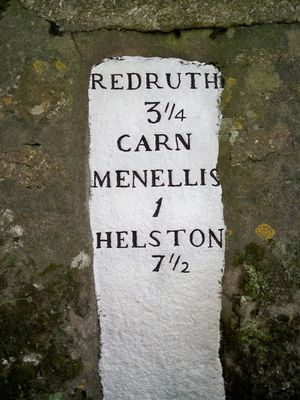 REDRUTH
3 1/4
CARN
MENELLIS
1
HELSTON
7 1/2